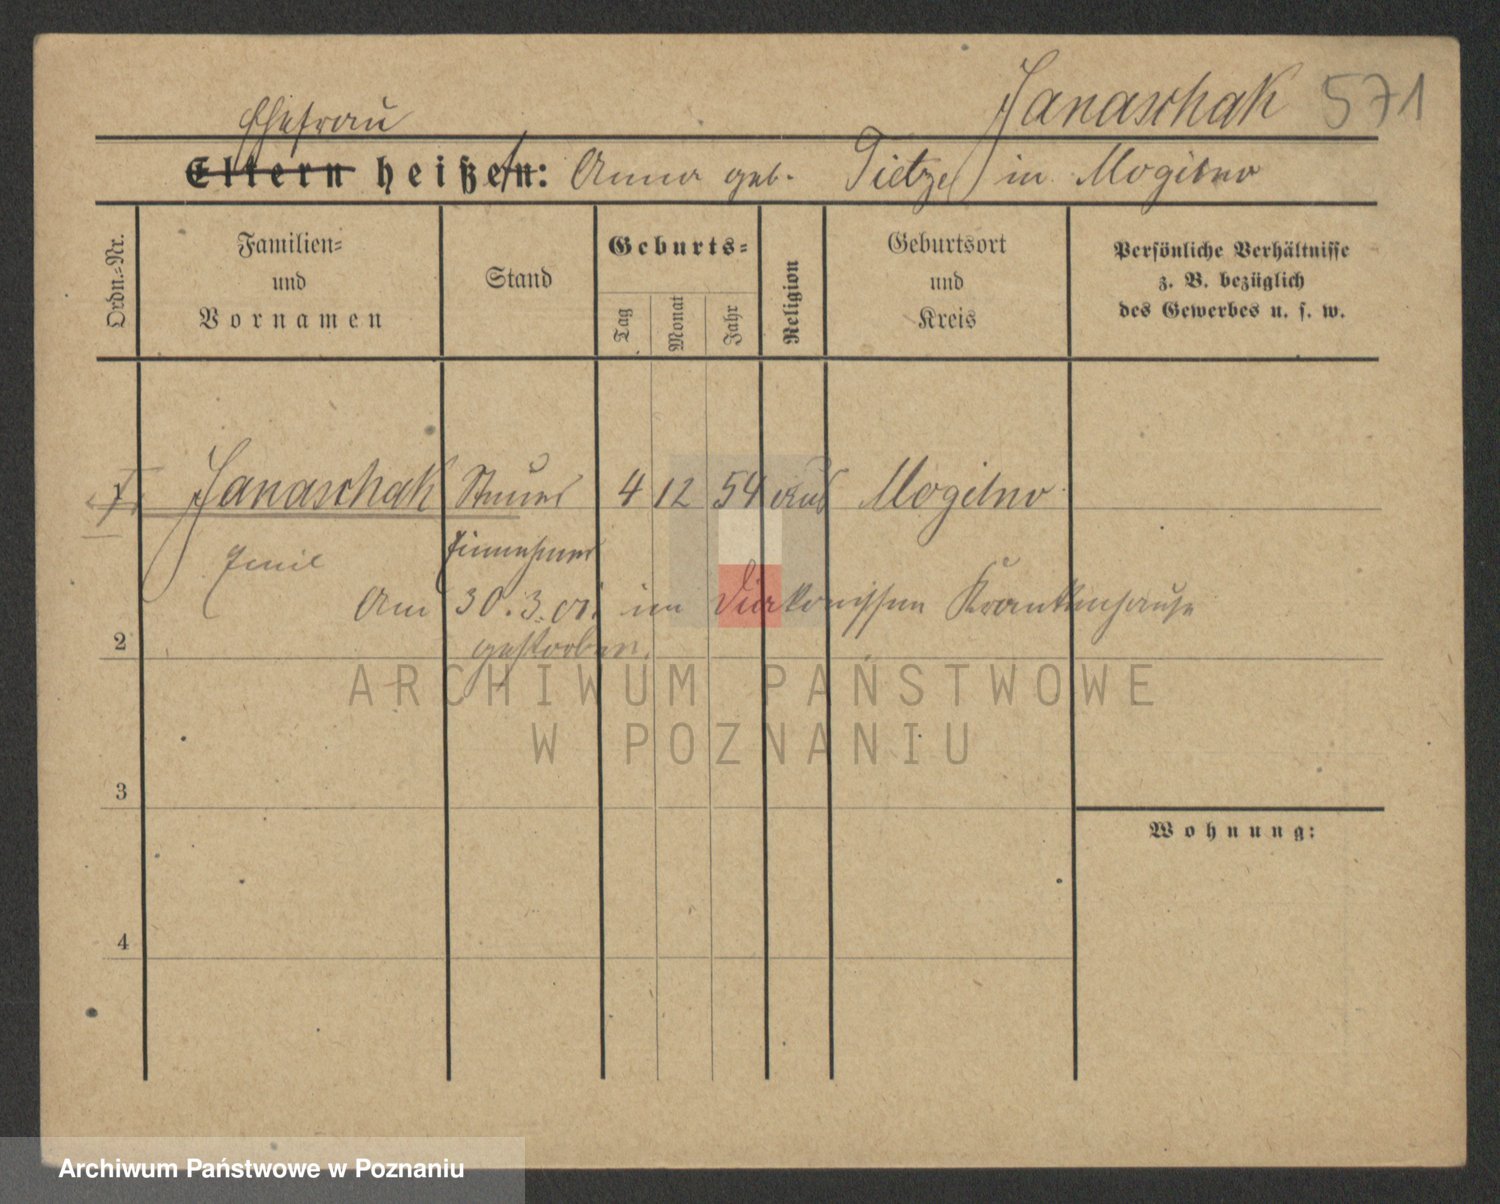 Janaschak 571
Ehefrau
Eltern heißen: Anna geb. Tietze in Mogilno
Ordn.-Nr.
Familien-
und
Vornamen
Stand
Geburts-
Tag
Monat
Jahr
Religion
Geburtsort
und
Kreis
Persönliche Verhältnisse
z. B. bezüglich
des Gewerbes u. s. w.
Janaschak Steuer 4 12 54 Mogilno
Emil Einnehmer
Am 30.3.01. im Diakonissen Krankenhause
2 gestorben.
ARCHIWUM PAŃSTWOWE
W POZNANIU
3
Wohnung:
4
Archiwum Państwowe w Poznaniu